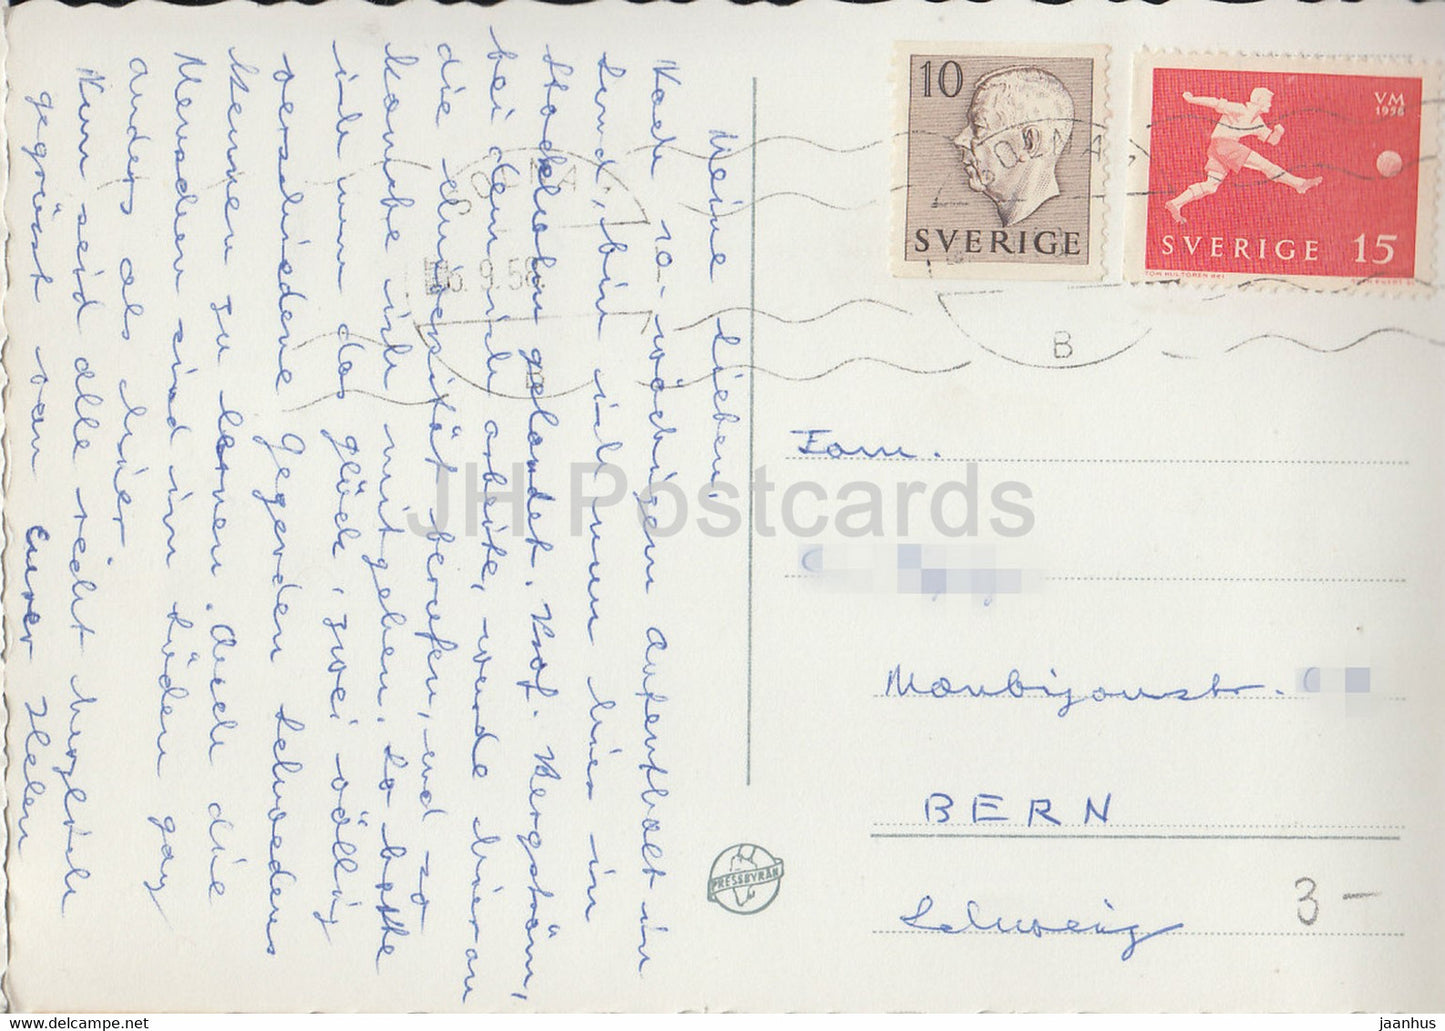 Meine Lieben,
Nach 10-wöchigem Aufenthalt in
Lund, bin ich nun hier in
Stockholm gelandet. Prof. Bergström,
bei dem ich arbeite, wurde hieran
die Universität berufen, und so
konnte ich mitgehen. So hatte
ich nun das Glück, zwei völlig
verschiedene Gegenden Schwedens
kennen zu lernen. Auch die
Menschen sind im Süden ganz
anders als hier.
Nun seid alle recht herzlich
gegrüsst von Eurer Helen
10
SVERIGE
VM
1958
SVERIGE 15
TOM HULTGREN DEL
SOLNA 1
SOLNA 1
5.9.58
B
B
Fam.
Monbijoustr.
BERN
Schweiz
3 —
PRESSBYRÅN
JH Postcards
www.delcampe.net
jaanhus